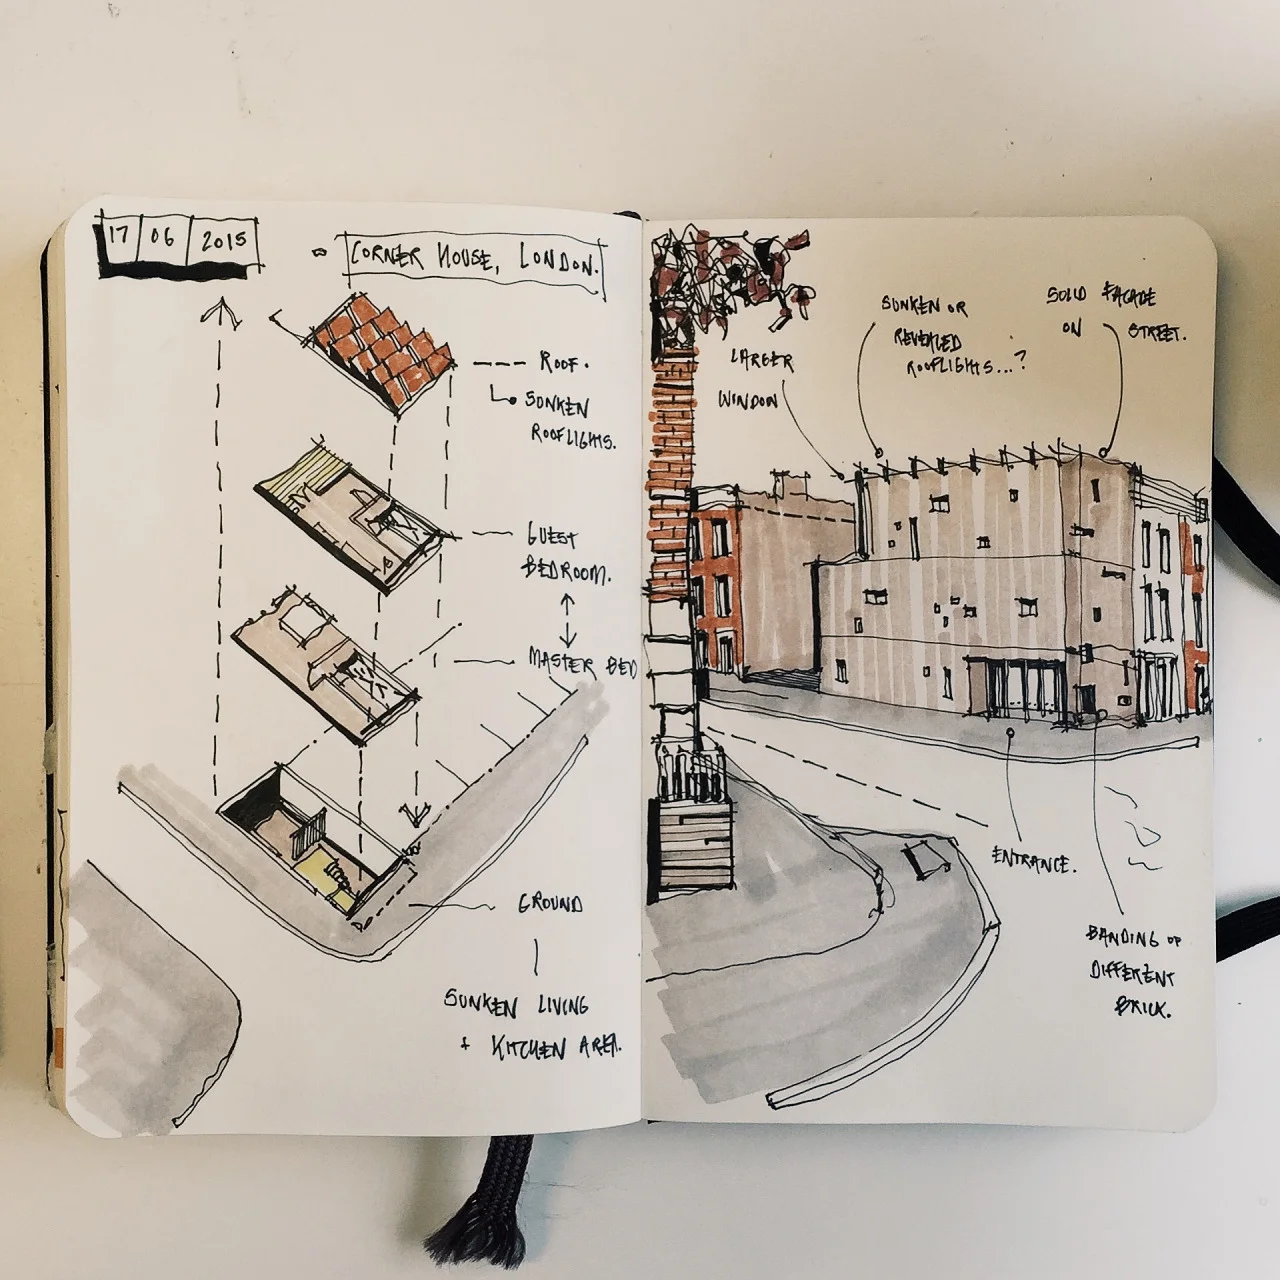 17 06 2015
CORNER HOUSE, LONDON.
ROOF.
SUNKEN
ROOFLIGHTS.
GUEST
BEDROOM.
MASTER BED
GROUND
SUNKEN LIVING
+ KITCHEN AREA.
LARGER
WINDOW
SUNKEN OR
REVEALED
ROOFLIGHTS...?
SOLID FACADE
ON STREET.
ENTRANCE.
BANDING OF
DIFFERENT
BRICK.